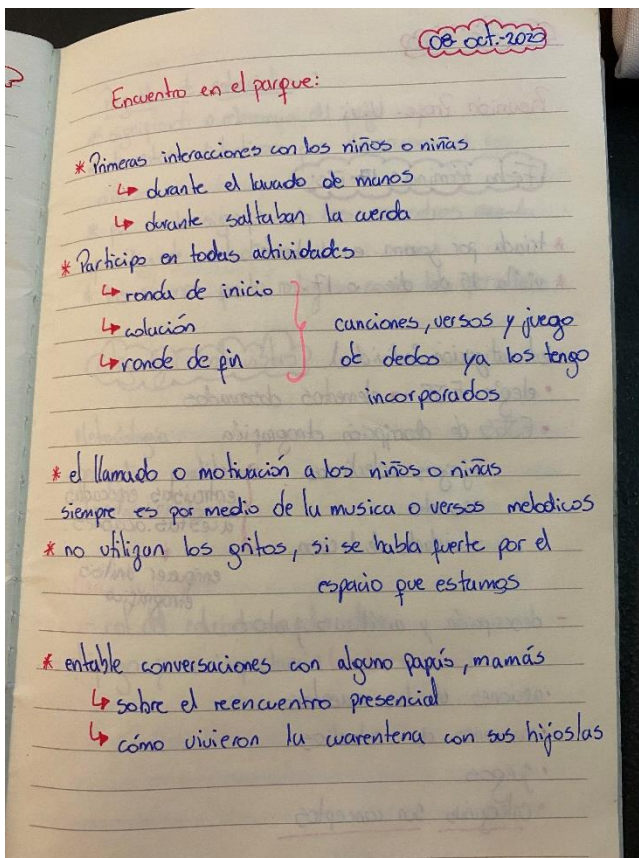 08-oct.-2020
Encuentro en el parque:
* Primeras interacciones con los niños o niñas
↳ durante el lavado de manos
↳ durante saltaban la cuerda
* Participo en todas actividades
↳ ronda de inicio
↳ colación canciones, versos y juego
↳ ronde de fin de dedos ya los tengo
incorporados
* el llamado o motivación a los niños o niñas
siempre es por medio de la musica o versos melodicos
* no utilizan los gritos, si se habla fuerte por el
espacio que estamos
* entable conversaciones con alguno papás, mamás
↳ sobre el reencuentro presencial
↳ cómo vivieron la cuarentena con sus hijos/as